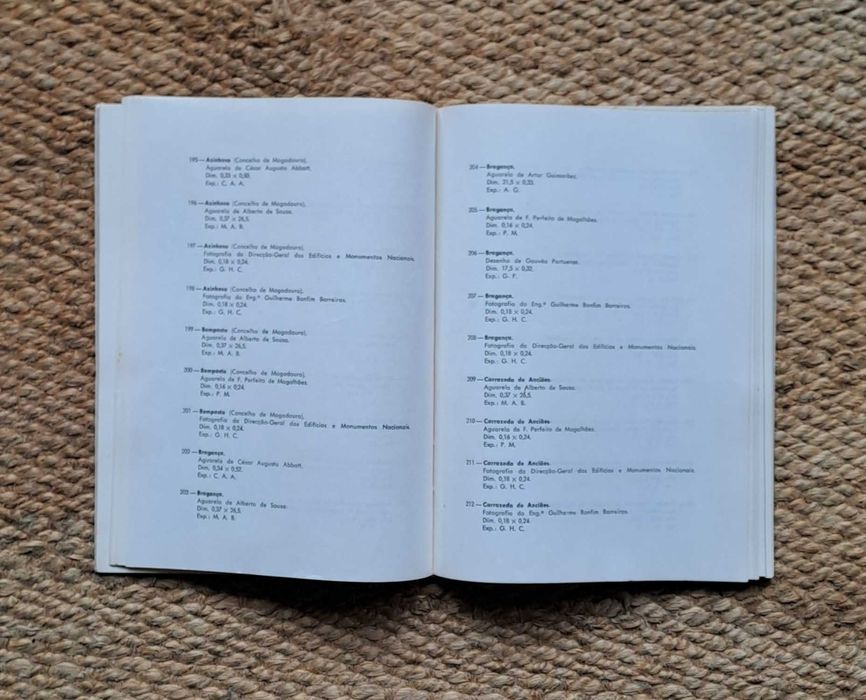 195 — Azinhoso (Concelho de Mogadouro).
Aguarela de César Augusto Abbott.
Dim. 0,33 × 0,50.
Exp.: C. A. A.
196 — Azinhoso (Concelho de Mogadouro).
Aguarela de Alberto de Sousa.
Dim. 0,37 × 26,5.
Exp.: M. A. B.
197 — Azinhoso (Concelho de Mogadouro).
Fotografia da Direcção-Geral dos Edifícios e Monumentos Nacionais.
Dim. 0,18 × 0,24.
Exp.: G. H. C.
198 — Azinhoso (Concelho de Mogadouro).
Fotografia do Eng.º Guilherme Bonfim Barreiros.
Dim. 0,18 × 0,24.
Exp.: G. H. C.
199 — Bemposta (Concelho de Mogadouro).
Aguarela de Alberto de Sousa.
Dim. 0,37 × 26,5.
Exp.: M. A. B.
200 — Bemposta (Concelho de Mogadouro).
Aguarela de F. Perfeito de Magalhães.
Dim. 0,16 × 0,24.
Exp.: P. M.
201 — Bemposta (Concelho de Mogadouro).
Fotografia da Direcção-Geral dos Edifícios e Monumentos Nacionais.
Dim. 0,18 × 0,24.
Exp.: G. H. C.
202 — Bragança.
Aguarela de César Augusto Abbott.
Dim. 0,34 × 0,52.
Exp.: C. A. A.
203 — Bragança.
Aguarela de Alberto de Sousa.
Dim. 0,37 × 26,5.
Exp.: M. A. B.
204 — Bragança.
Aguarela de Artur Guimarães.
Dim. 21,5 × 0,33.
Exp.: A. G.
205 — Bragança.
Aguarela de F. Perfeito de Magalhães.
Dim. 0,16 × 0,24.
Exp.: P. M.
206 — Bragança.
Desenho de Gouvêa Portuense.
Dim. 17,5 × 0,32.
Exp.: G. P.
207 — Bragança.
Fotografia do Eng.º Guilherme Bonfim Barreiros.
Dim. 0,18 × 0,24.
Exp.: G. H. C.
208 — Bragança.
Fotografia da Direcção-Geral dos Edifícios e Monumentos Nacionais.
Dim. 0,18 × 0,24.
Exp.: G. H. C.
209 — Carrazeda de Anciães.
Aguarela de Alberto de Sousa.
Dim. 0,37 × 26,5.
Exp.: M. A. B.
210 — Carrazeda de Anciães.
Aguarela de F. Perfeito de Magalhães.
Dim. 0,16 × 0,24.
Exp.: P. M.
211 — Carrazeda de Anciães.
Fotografia da Direcção-Geral dos Edifícios e Monumentos Nacionais.
Dim. 0,18 × 0,24.
Exp.: G. H. C.
212 — Carrazeda de Anciães.
Fotografia do Eng.º Guilherme Bonfim Barreiros.
Dim. 0,18 × 0,24.
Exp.: G. H. C.